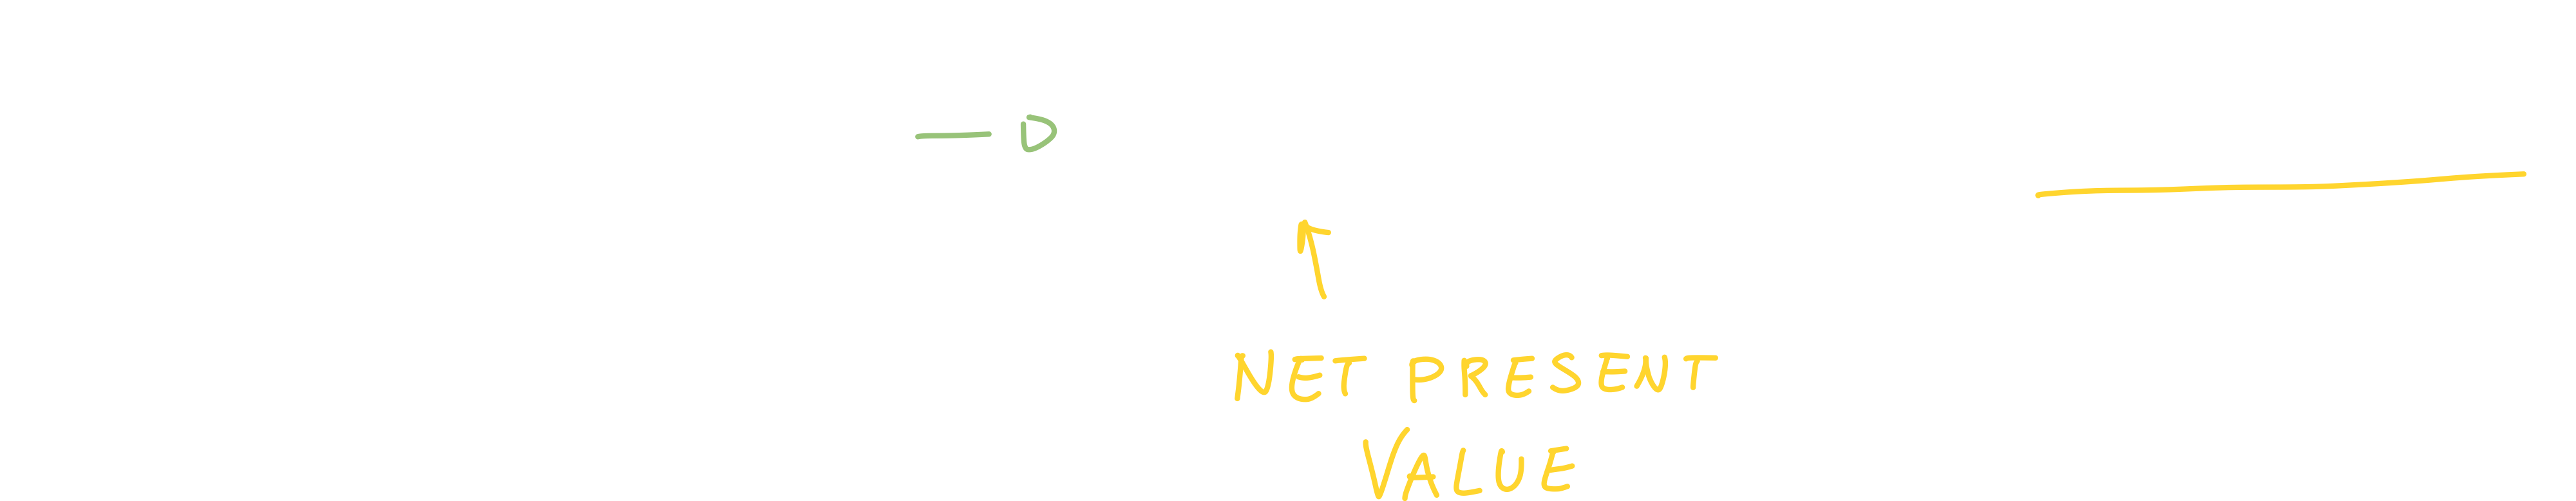 NET PRESENT
VALUE